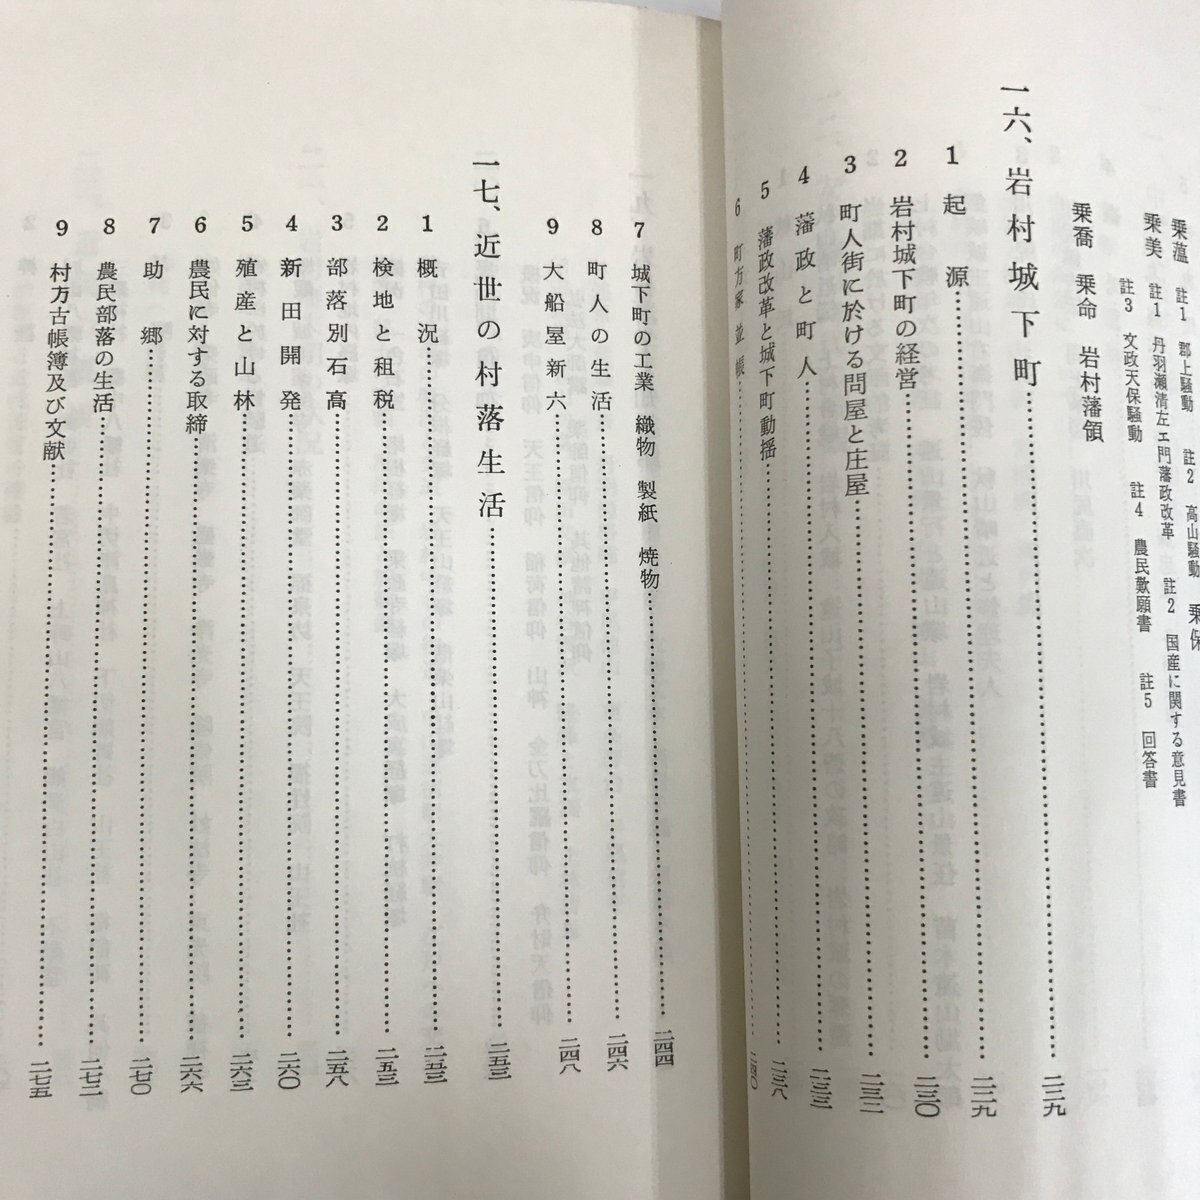 乗薀 註1 郡上騒動 註2 高山騒動 乗保
乗美 註1 丹羽瀬清左エ門藩政改革 註2 国産に関する意見書
註3 文政天保騒動 註4 農民歎願書 註5 回答書
乗喬 乗命 岩村藩領
一六、岩村城下町……二二九
1 起源……二二九
2 岩村城下町の経営……二三〇
3 町人街に於ける問屋と庄屋……二三二
4 藩政と町人……二三三
5 藩政改革と城下町動揺……二三八
6 町方家並帳……二四〇
7 城下町の工業 織物 製紙 焼物……二四四
8 町人の生活……二四六
9 大船屋新六……二四八
一七、近世の村落生活……二五三
1 概況……二五三
2 検地と租税……二五三
3 部落別石高……二五八
4 新田開発……二六〇
5 殖産と山林……二六三
6 農民に対する取締……二六六
7 助郷……二七〇
8 農民部落の生活……二七二
9 村方古帳簿及び文献……二七五